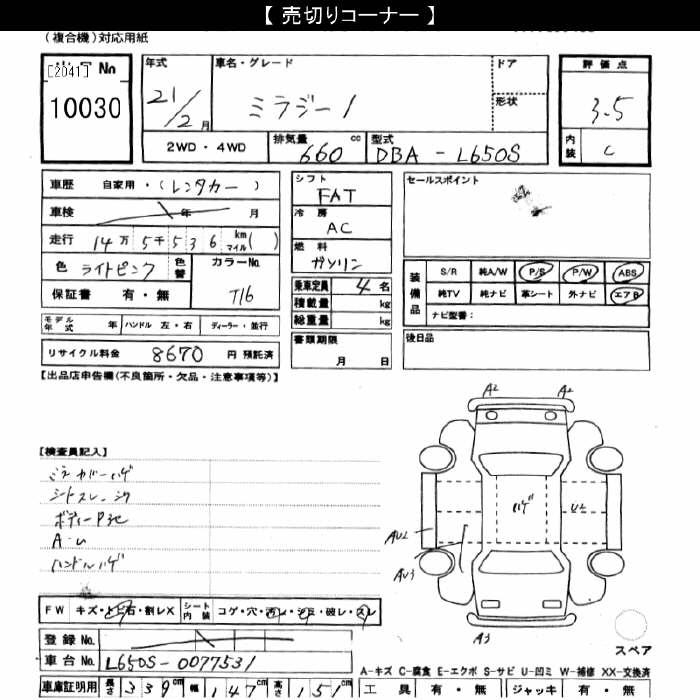 【 売切りコーナー 】
(複合機)対応用紙
[2041] No
10030
年式
21/2 月
車名・グレード
ミラジーノ
ドア
形状
評価点
3.5
内装
C
2WD・4WD
排気量 cc
660
型式
DBA - L650S
車歴 自家用・(レンタカー)
車検 年 月
走行 14万5千536 km マイル( )
色 ライトピンク 色替 カラーNo.
T16
保証書 有・無
シフト
FAT
冷房
AC
燃料
ガソリン
乗車定員 4名
積載量 kg
総重量 kg
書類期限
月 日
セールスポイント
装備品
S/R 純A/W P/S P/W ABS
純TV 純ナビ 革シート 外ナビ エアB
ナビ型番：
後日品
モデル年式 年 ハンドル 左・右 ディーラー・並行
リサイクル料金 8670 円 預託済
【出品店申告欄(不良箇所・欠品・注意事項等)】
【検査員記入】
ミラーカバーハゲ
シートスレ
A・U
ハンドルハゲ
A2 A2
ハゲ
U2
AU2
AU3
A3
スペア
FW キズ・トビ石・割レX シート内装 コゲ・穴・汚レ・シミ・破レ・スレ
登録No.
車台No. L650S-0077531
車庫証明用 長さ 339cm 幅 147cm 高さ 151cm
A-キズ C-腐食 E-エクボ S-サビ U-凹ミ W-補修 XX-交換済
工具 有・無 ジャッキ 有・無